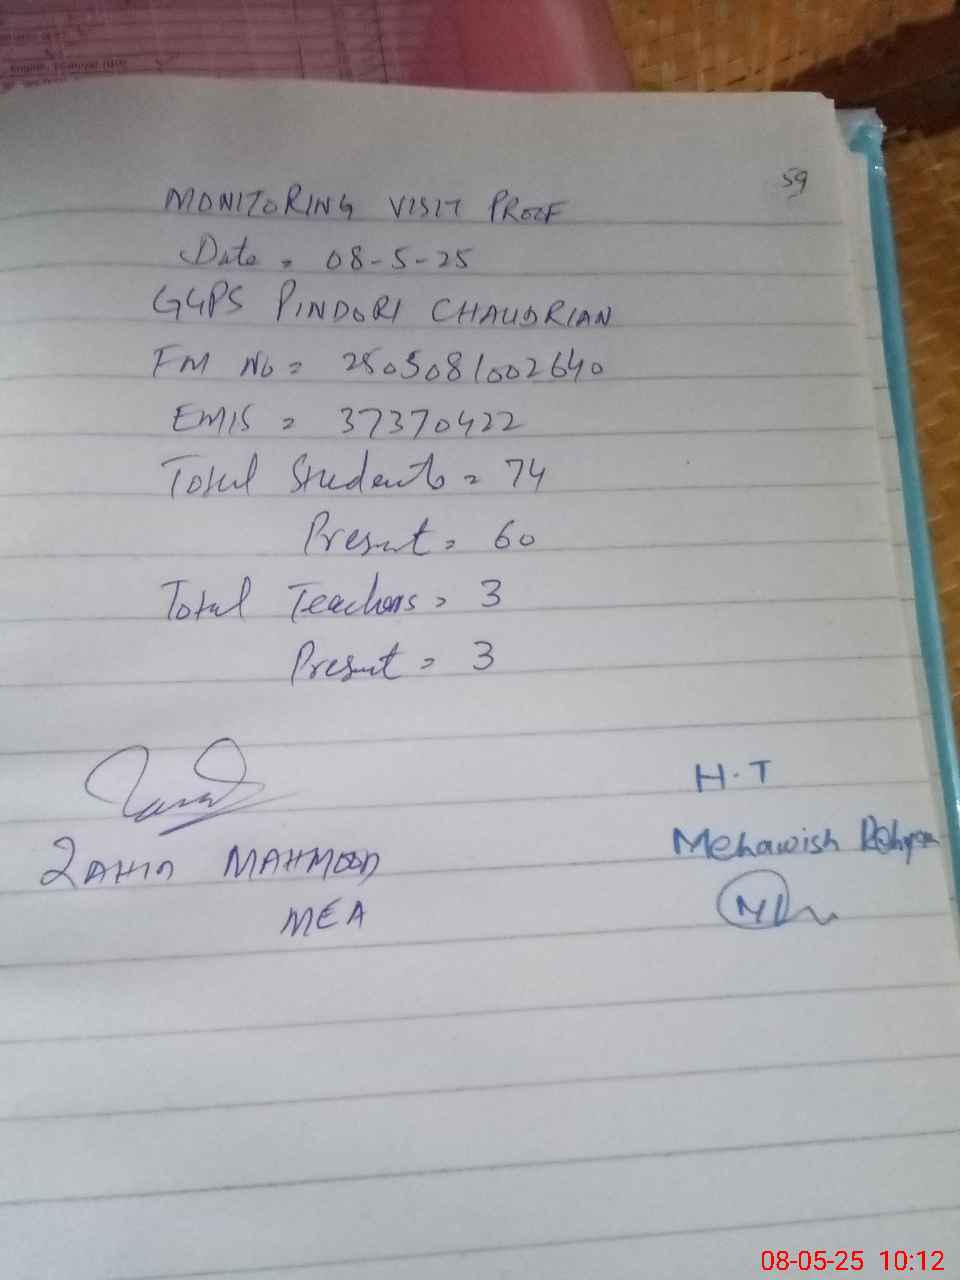 English,
59
MONITORING VISIT PROOF
Date = 08-5-25
GGPS PINDORI CHAUDRIAN
FM No = 2505081002640
EMIS = 37370422
Total Students = 74
Present = 60
Total Teachers = 3
Present = 3
H.T
ZAHID MAHMOOD
Mehawish
MEA
08-05-25 10:12